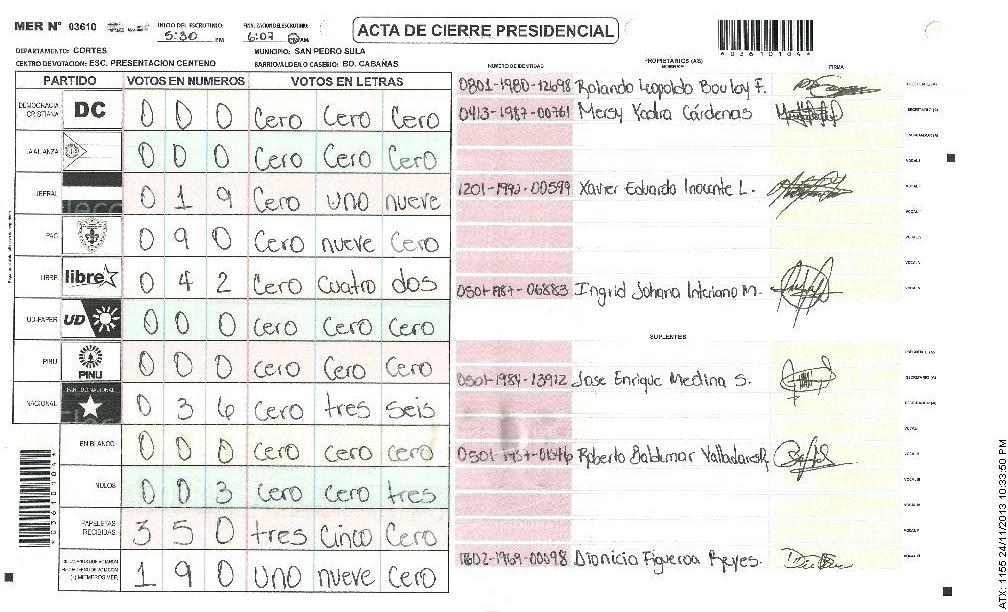 MER Nº 03610 INICIO DEL ESCRUTINIO: 5:30 PM FINALIZACION DEL ESCRUTINIO: 6:07 AM
ACTA DE CIERRE PRESIDENCIAL
*03610104*
DEPARTAMENTO: CORTES MUNICIPIO: SAN PEDRO SULA
CENTRO DE VOTACION: ESC. PRESENTACION CENTENO BARRIO/ALDEA O CASERIO: BO. CABAÑAS
PARTIDO VOTOS EN NUMEROS VOTOS EN LETRAS
DEMOCRACIA CRISTIANA DC 0 0 0 Cero Cero Cero
LA ALIANZA 0 0 0 Cero Cero Cero
LIBERAL 0 1 9 Cero uno nueve
PAC 0 9 0 Cero nueve Cero
LIBRE libre 0 4 2 Cero cuatro dos
UD-FAPER UD 0 0 0 Cero Cero Cero
PINU PINU 0 0 0 Cero Cero Cero
NACIONAL PARTIDO NACIONAL 0 3 6 Cero tres seis
EN BLANCO 0 0 0 Cero Cero Cero
NULOS 0 0 3 Cero cero tres
PAPELETAS RECIBIDAS 3 5 0 tres Cinco Cero
1 9 0 Uno nueve Cero
NUMERO DE IDENTIDAD PROPIETARIOS (AS) NOMBRE FIRMA
0801-1980-12698 Rolando Leopoldo Boulay F.
0413-1987-00761 Mersy Yadira Cárdenas SECRETARIO (A)
ESCRUTADOR (A)
VOCAL I
1201-1992-00599 Xavier Eduardo Inocente L.
0501-1987-06883 Ingrid Johana Interiano M.
SUPLENTES
0501-1984-13912 Jose Enrique Medina S. SECRETARIO (A)
ESCRUTADOR (A)
VOCAL I
Roberto Baldemar Valladares R. VOCAL II
VOCAL III
Dionicio Figueroa Reyes.
*03610104*
ATX: 1155 24/11/2013 10:33:50 PM